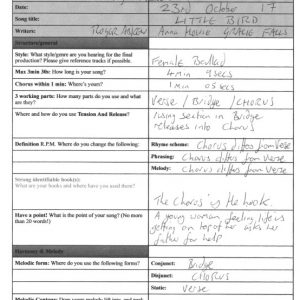 Date: 23rd October 17
Song title: LITTLE BIRD
Writers: Anna Howie GRACIE FALLS
Structure/general
Style: What style/genre are you hearing for the final production? Please give reference tracks if possible. Female Ballad
Max 3min 30s: How long is your song? 4min 9secs
Chorus within 1 min: Where's yours? 1min 05secs
3 working parts: How many parts do you use and what are they? Verse / Bridge / CHORUS
Where and how do you use Tension And Release? rising section in Bridge
releases into Chorus
Definition R.P.M. Where do you change the following:
Rhyme scheme: Chorus differs from Verse
Phrasing: Chorus differs from Verse
Melody: Chorus differs from Verse
Strong identifiable hook(s):
What are your hooks and where have you used them?
The Chorus is the hook.
Have a point! What is the point of your song? (No more than 20 words!)
A young woman, feeling life is
getting on top of her asks her
father for help
Harmony & Melody
Melodic form: Where do you use the following forms?
Conjunct: Bridge
Disjunct: CHORUS
Static: Verse